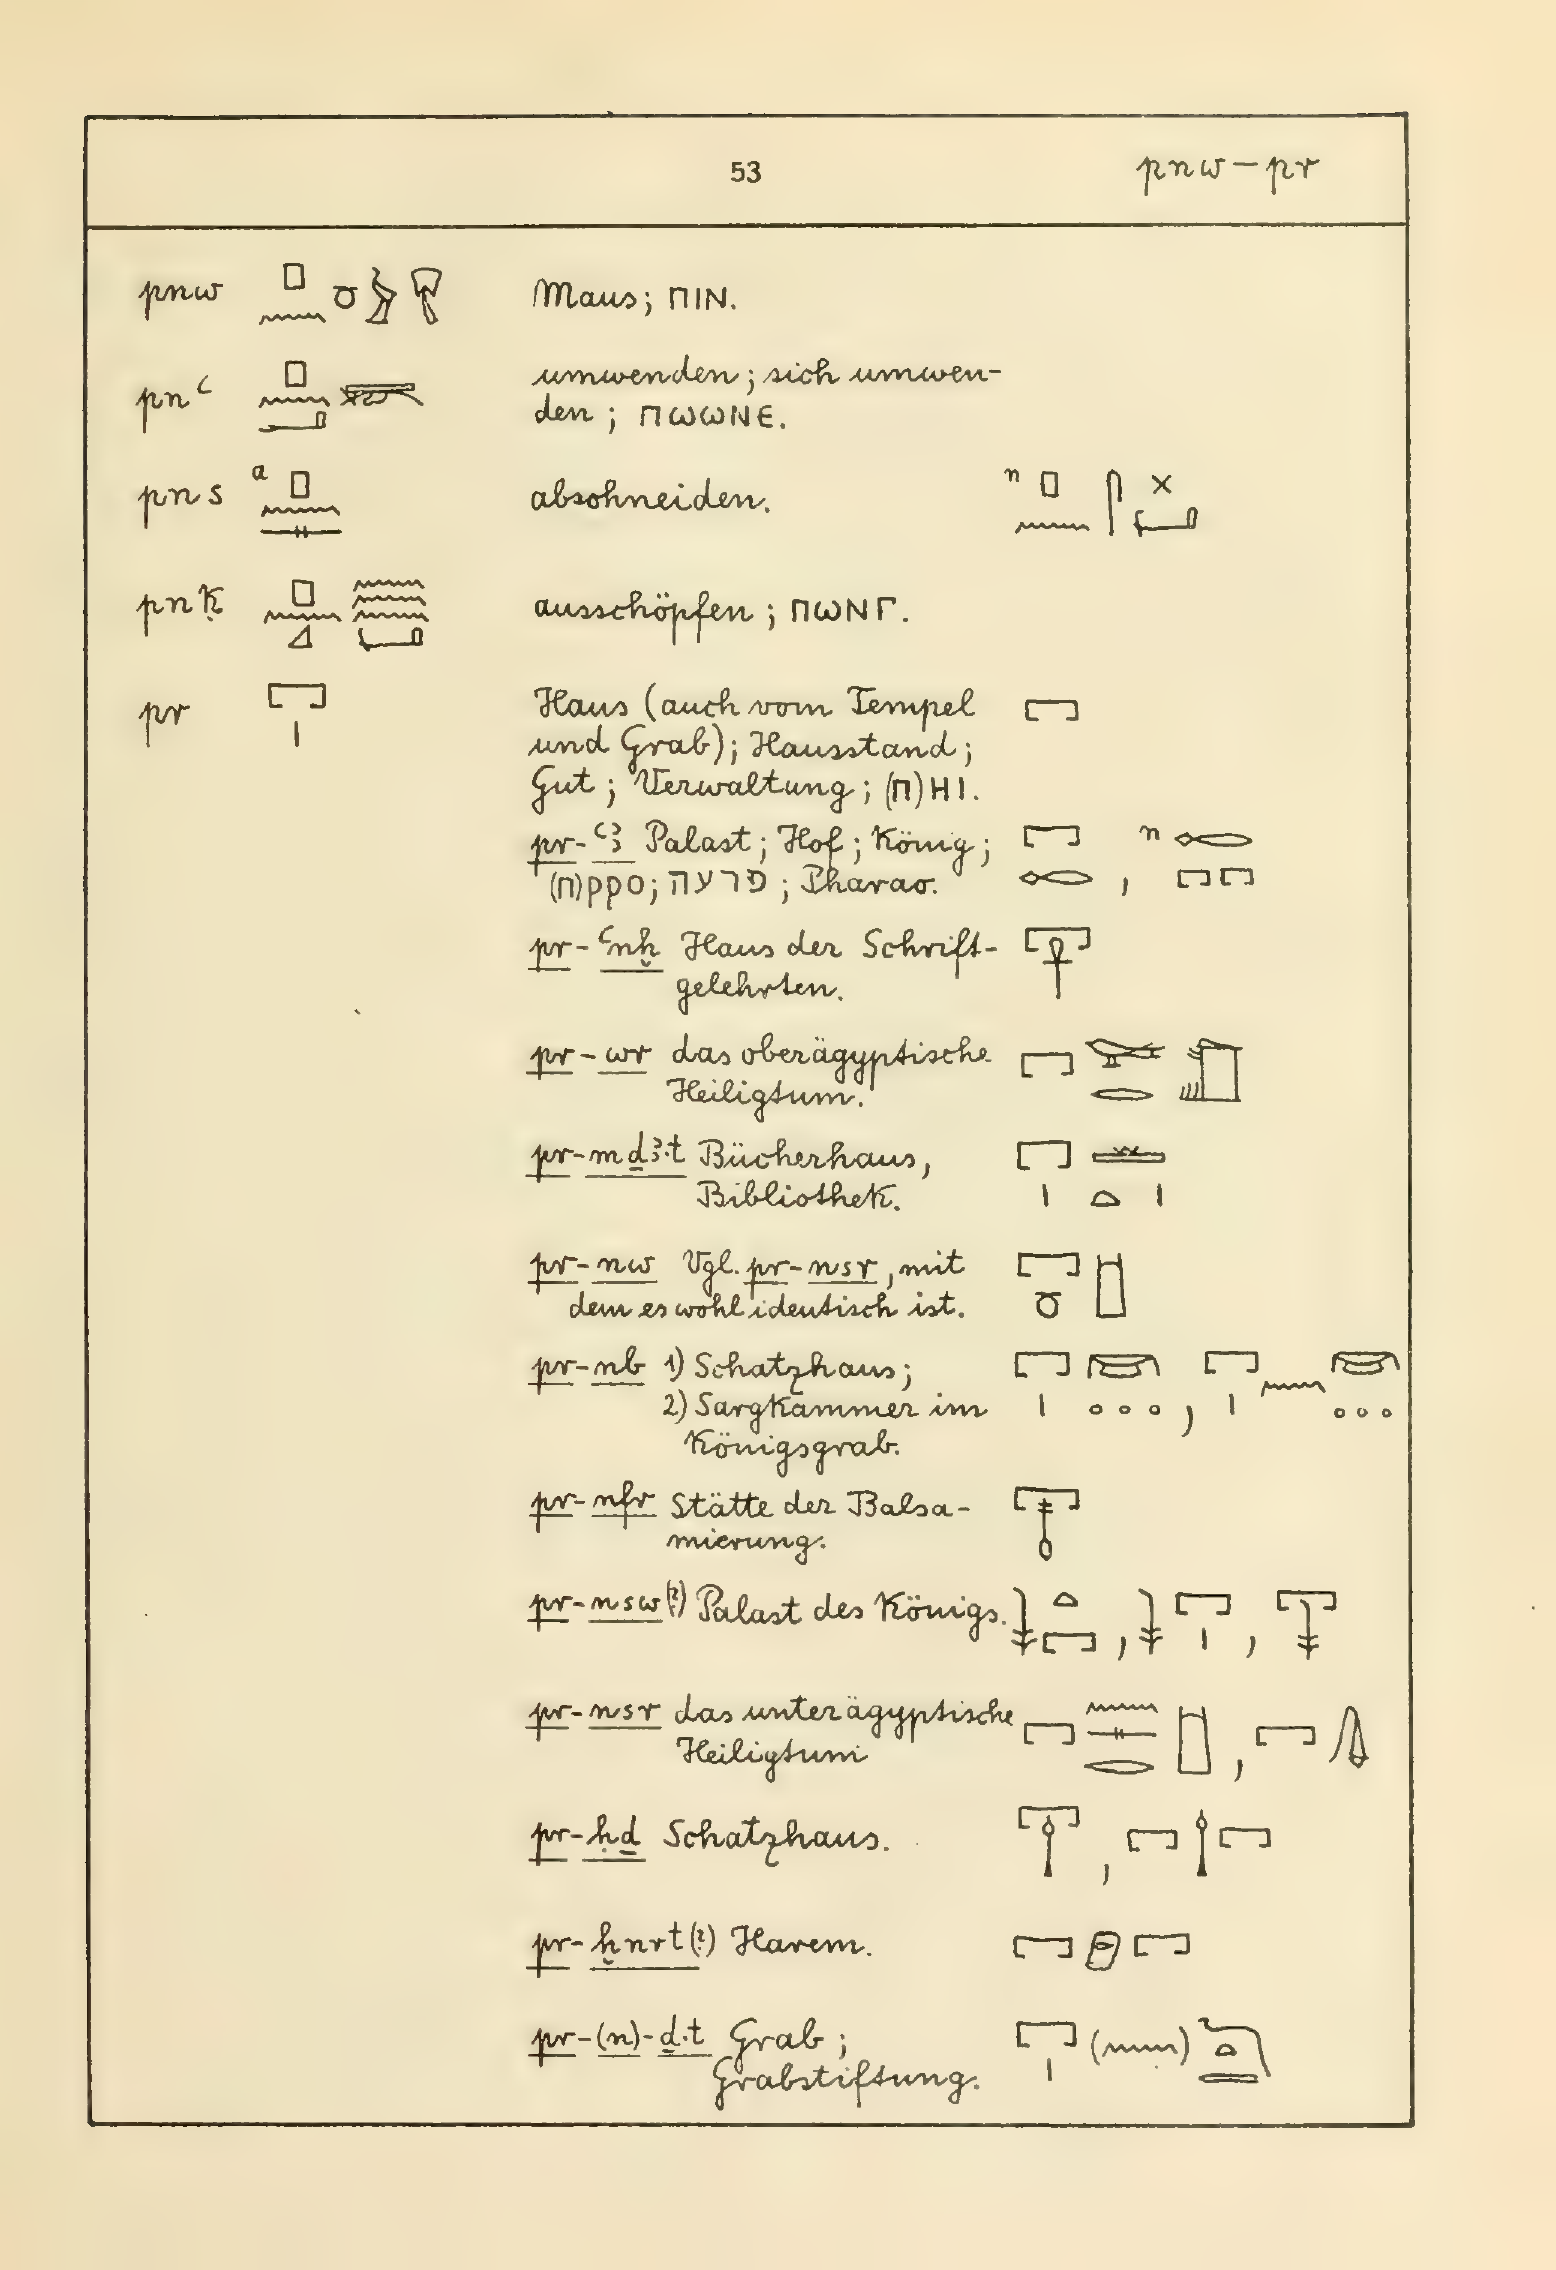 53 pnw – pr
pnw 𓊪𓈖𓏌𓅱𓄛 Maus; ⲠⲒⲚ.
pnꜥ umwenden; sich umwen-
den; ⲠⲰⲰⲚⲈ.
pns a abschneiden. n
pnḳ ausschöpfen; ⲠⲰⲚⲄ.
pr 𓉐𓏤 Haus (auch vom Tempel 𓉐
und Grab); Hausstand;
Gut; Verwaltung; (Ⲡ)ⲎⲒ.
pr-ꜥꜣ Palast; Hof; König; 𓉐𓉻, n 𓉻𓉐𓉐
(Ⲡ)ⲢⲢⲞ; פרעה; Pharao.
pr-ꜥnḫ Haus der Schrift- 𓉐𓋹
gelehrten.
pr-wr das oberägyptische
Heiligtum.
pr-mḏꜣ.t Bücherhaus, 𓉐𓏤𓏛𓏏𓏤
Bibliothek.
pr-nw Vgl. pr-nsr, mit 𓉐𓏌𓉴
dem es wohl identisch ist.
pr-nb 1) Schatzhaus; 𓉐𓏤𓋞𓏥, 𓉐𓏤𓈖𓋞𓏥
2) Sargkammer im
Königsgrab.
pr-nfr Stätte der Balsa- 𓉐𓄤
mierung.
pr-nsw(?) Palast des Königs. 𓇓𓏏𓉐, 𓇓𓉐𓏤, 𓉐𓇓
pr-nsr das unterägyptische
Heiligtum
pr-ḥḏ Schatzhaus. 𓉐𓌉, 𓉐𓌉𓉐
pr-ḫnrt(?) Harem.
pr-(n)-ḏ.t Grab; 𓉐𓏤(𓈖)𓆓𓏏𓇿
Grabstiftung.